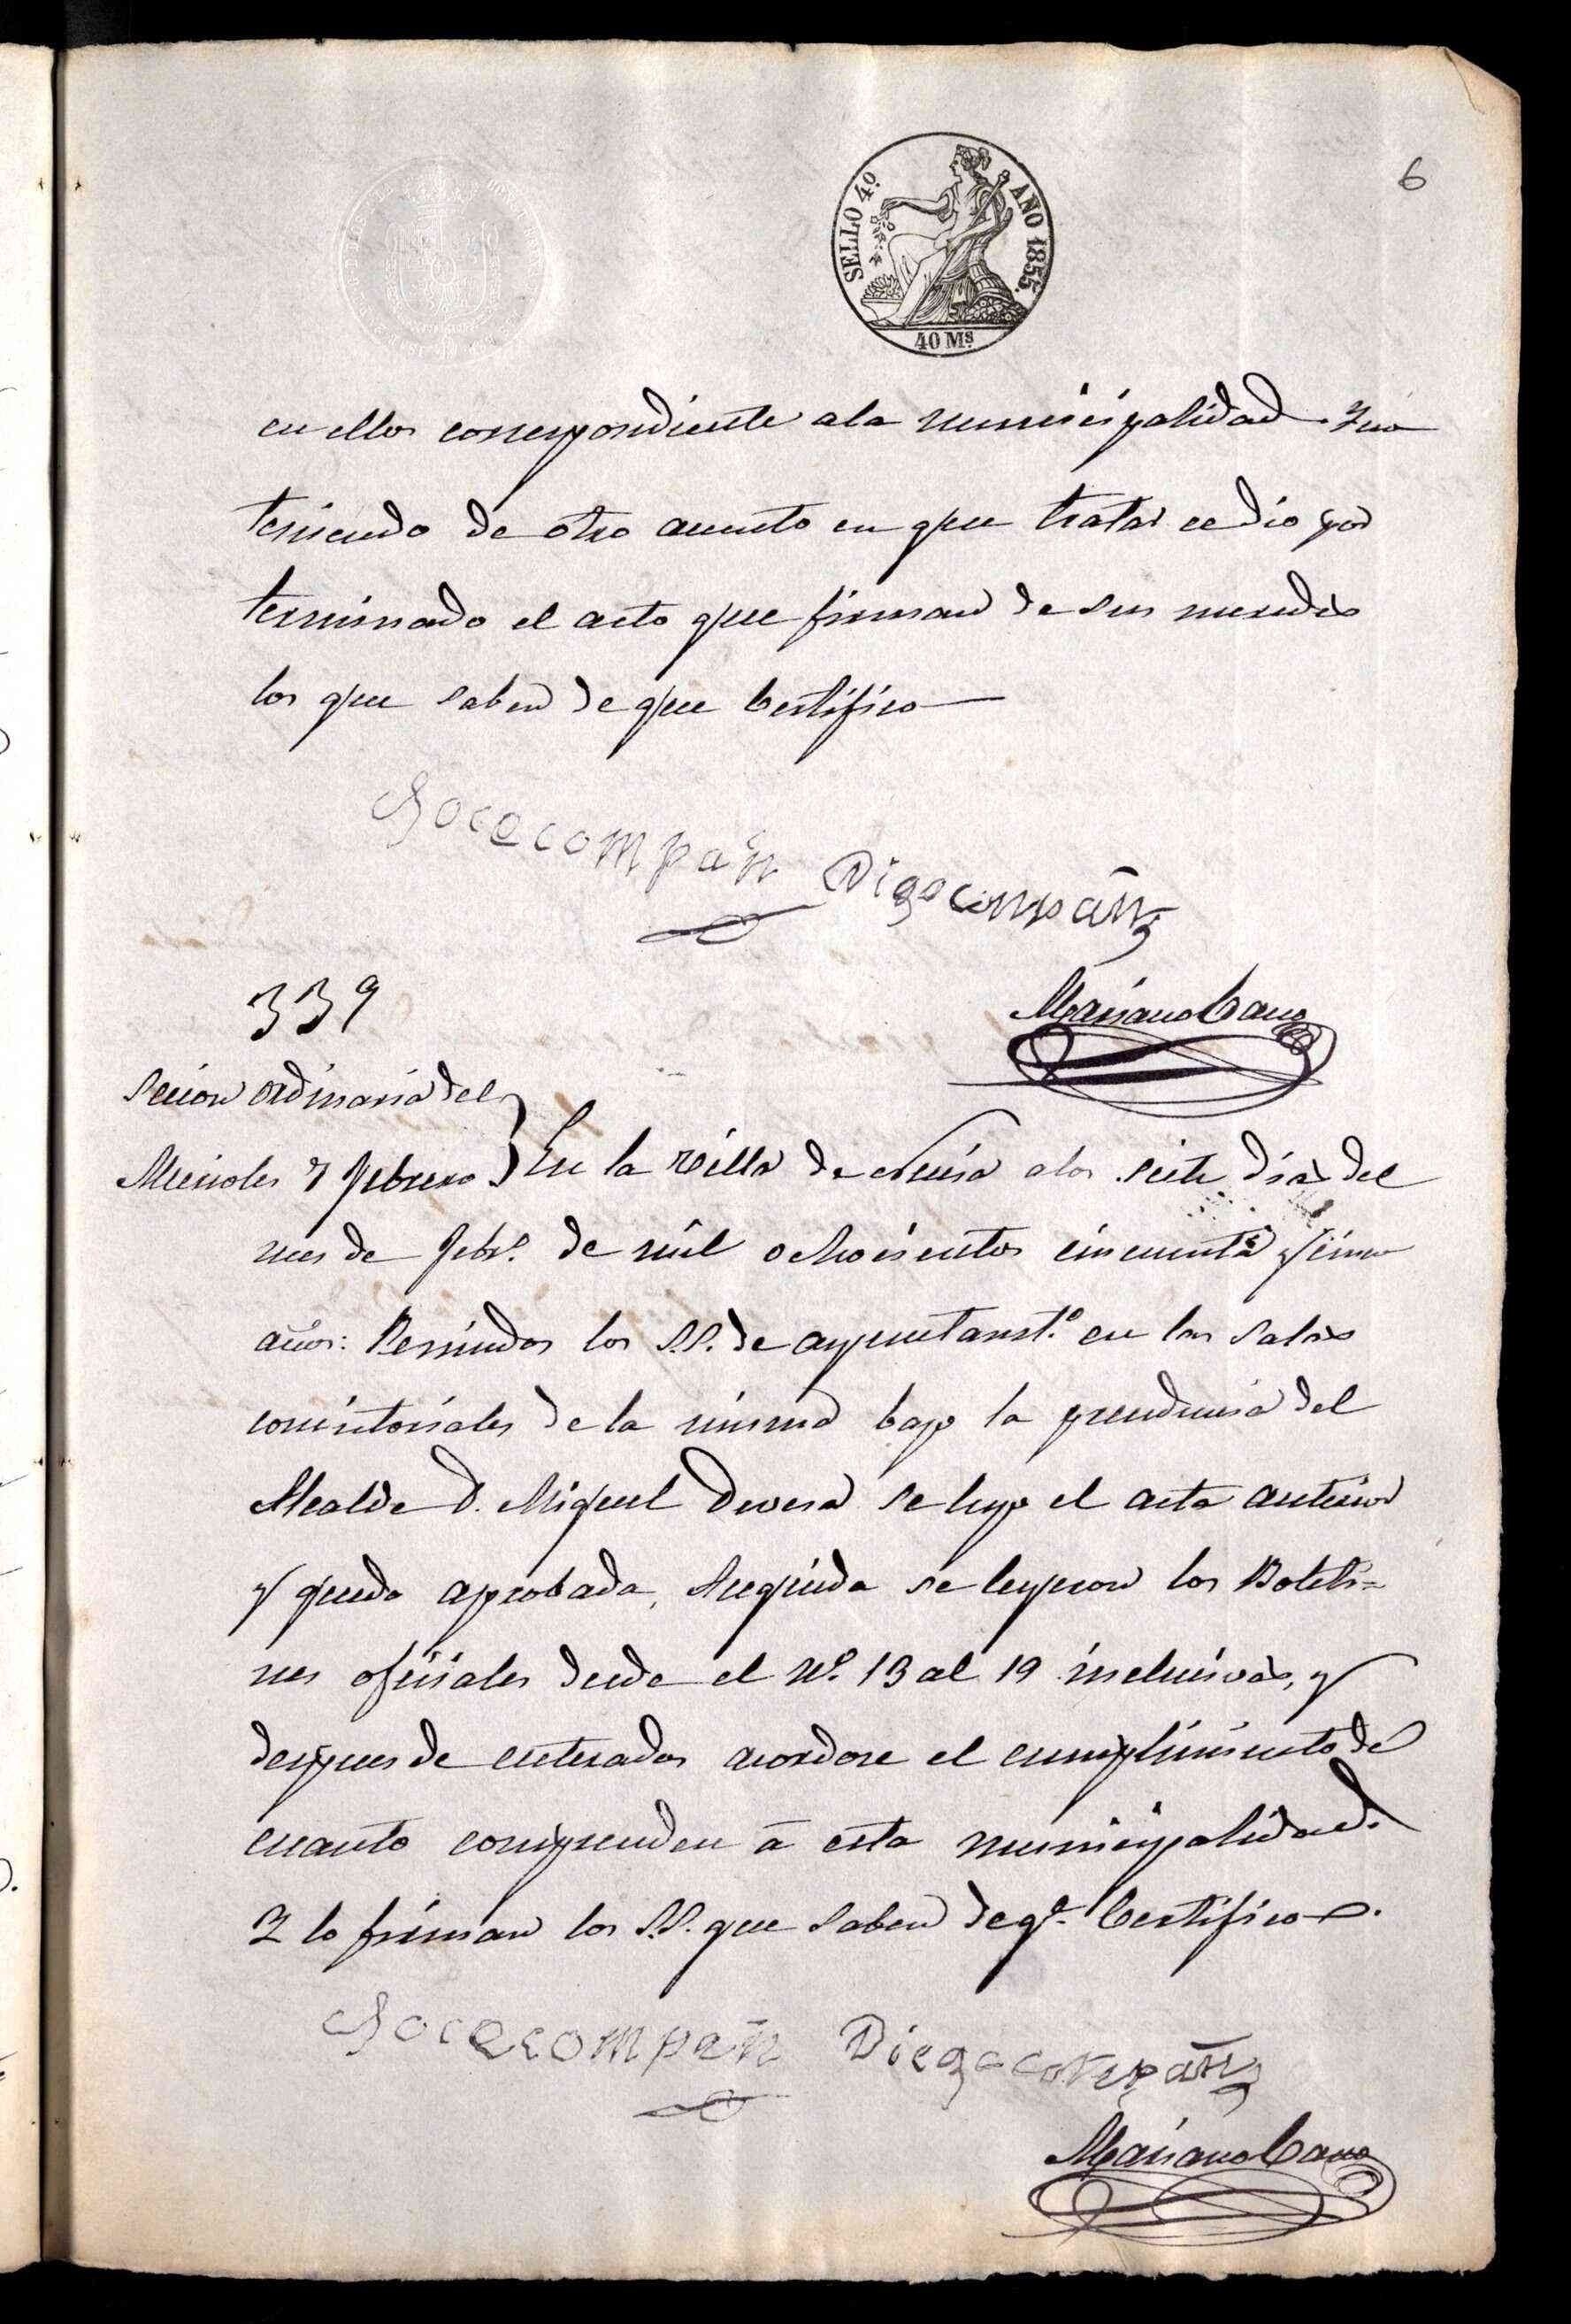 6
SELLO 4º AÑO 1855.
40 Ms
en ellos correspondiente ala municipalidad. Y no
teniendo de otro asunto en que tratar se dio por
terminado el acto que firman de sus mercedes
los que saben de que Certifico
Roce compañ Diego compañ
Mariano Cano
339
Secion ordinaria del
Miercoles 7 Febrero } En la villa de Nucia a los siete dias del
mes de Febº. de mil ochocientos cincuenta y cinco
años: Reunidos los S.S. de ayuntamtº. en las Salas
consistoriales de la misma bajo la presidencia del
Alcalde D. Miguel Devesa se leyo el acta anterior
y quedo aprobada, Seguida se leyeron los Boleti=
nes ofiiales desde el Nº. 13 al 19 inclusivas, y
despues de enterados acordose el cumplimiento de
cuanto comprenden á esta municipalidad.
Y lo firman los S.S. que saben de qº. Certifico.
Roce compañ Diego compañ
Mariano Cano